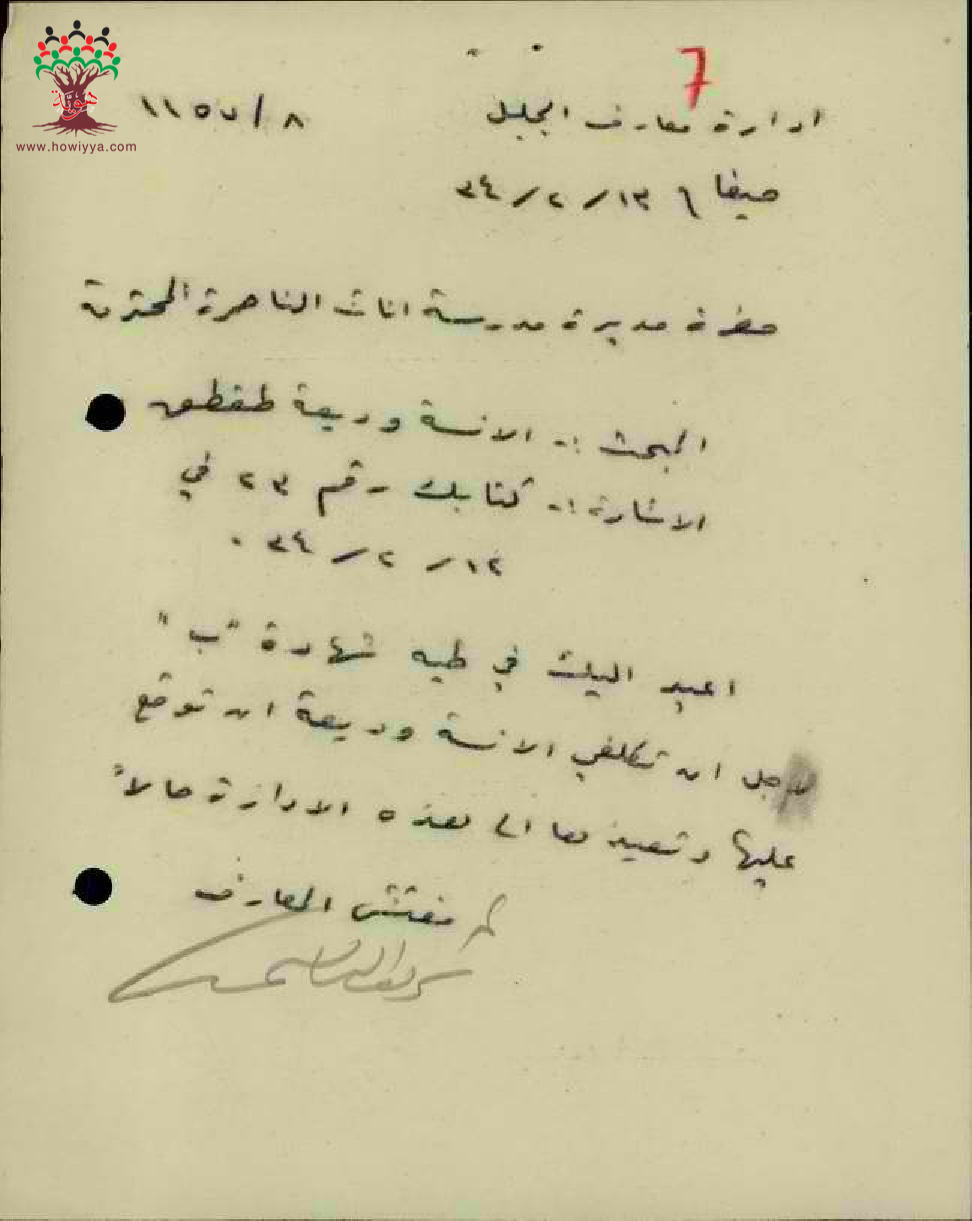 هوية
www.howiyya.com
7
ادارة معارف الجليل ٨/ ١١٥٧
حيفا ١٣/٢/٣٤
حضرة مديرة مدرسة اناث الناصرة المحترمة
المبحث :- الانسة وديعة قطقط
الاشارة :- كتابك رقم ٢٣ في
١٢/٢/٣٤ .
اعيد اليك في طيه شهادة "ب"
لاجل ان تكلفي الانسة وديعة ان توقع
عليها وتعيديها الى هذه الادارة حالاً
مفتش المعارف